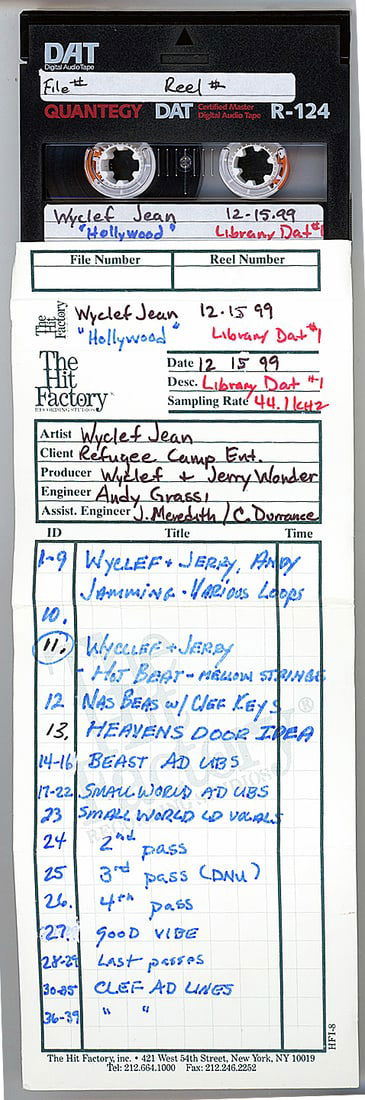 DAT
Digital Audio Tape
File# Reel #
QUANTEGY DAT Certified Master Digital Audio Tape R-124
Wyclef Jean 12-15.99
"Hollywood" Library Dat #1
File Number Reel Number
The Hit Factory
Wyclef Jean 12.15 99
"Hollywood" Library Dat #1
The Hit Factory
RECORDING STUDIOS
Date 12 15 99
Desc. Library Dat #1
Sampling Rate 44.1kHz
Artist Wyclef Jean
Client Refugee Camp Ent.
Producer Wyclef + Jerry Wonder
Engineer Andy Grassi
Assist. Engineer J. Meredith / C. Durrance
ID Title Time
1-9 WYCLEF + JERRY, ANDY
JAMMING - VARIOUS LOOPS
10.
11. WYCLLEF + JERRY
- HOT BEAT - MELLOW STRINGS
12 NAS BEAS W/ CLEF KEYS
13. HEAVENS DOOR IDEA
14-16 BEAST AD LIBS
17-22 SMALL WORLD AD LIBS
23 SMALL WORLD LD VOCALS
24 2nd pass
25 3rd pass (DNU)
26. 4th pass
27. GOOD VIBE
28-29 Last passes
30-35 CLEF AD LINES
36-39 " "
The Hit Factory
RECORDING STUDIOS
HFI-8
The Hit Factory, inc. • 421 West 54th Street, New York, NY 10019
Tel: 212.664.1000 Fax: 212.246.2252